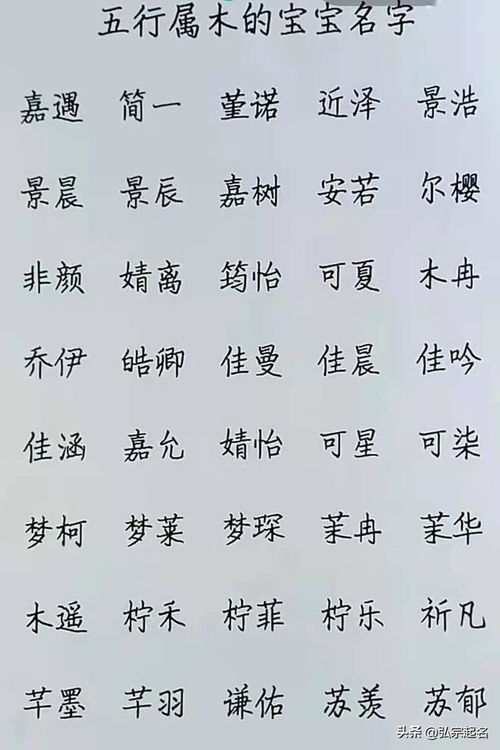 五行属木的宝宝名字
嘉遇 简一 堇诺 近泽 景浩
景晨 景辰 嘉树 安若 尔樱
非颜 婧离 筠怡 可夏 木冉
乔伊 皓卿 佳曼 佳晨 佳吟
佳涵 嘉允 婧怡 可星 可柒
梦柯 梦莱 梦琛 茉冉 茉华
木遥 柠禾 柠菲 柠乐 祈凡
芊墨 芊羽 谦佑 苏羡 苏郁
头条 @弘宗起名